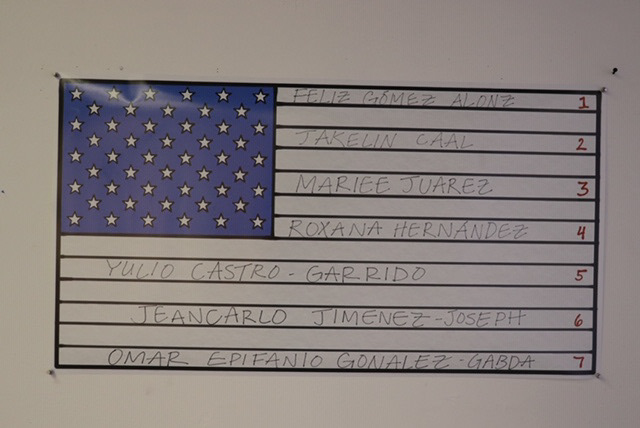 FELIZ GÓMEZ ALONZ 1
JAKELIN CAAL 2
MARIEE JUAREZ 3
ROXANA HERNÁNDEZ 4
YULIO CASTRO-GARRIDO 5
JEANCARLO JIMENEZ-JOSEPH 6
OMAR EPIFANIO GONALEZ-GABDA 7